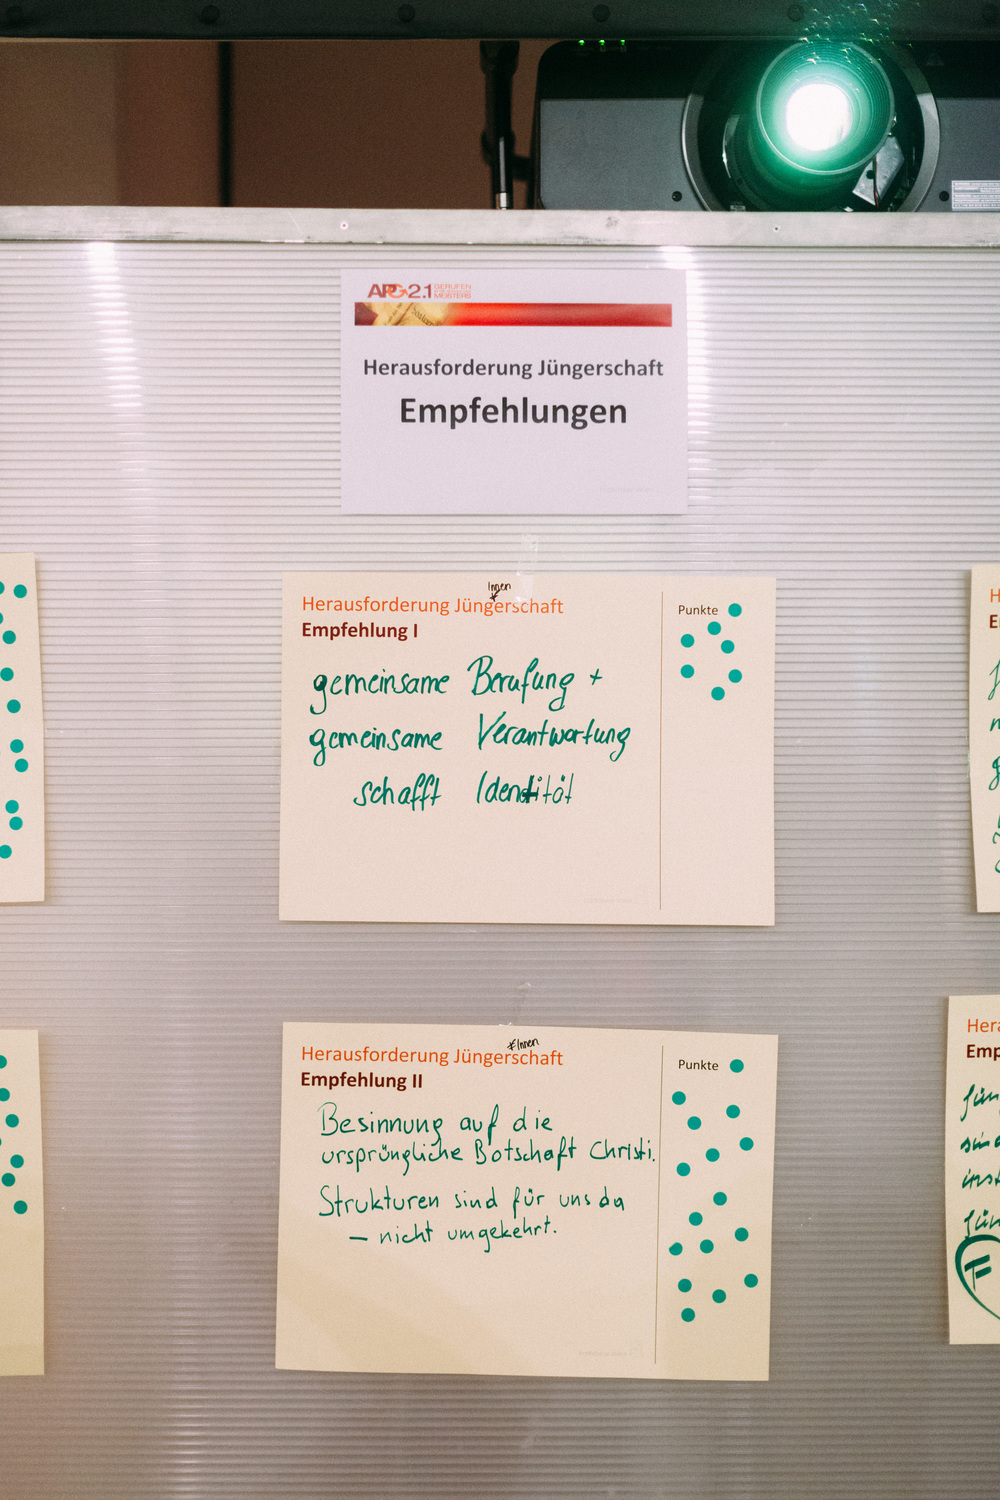 APG2.1 GERUFEN
MEISTERS
Herausforderung Jüngerschaft
Empfehlungen
Innen
Herausforderung Jüngerschaft
Empfehlung I
Punkte
gemeinsame Berufung +
gemeinsame Verantwortung
schafft Identität
*Innen
Herausforderung Jüngerschaft
Empfehlung II
Punkte
Besinnung auf die
ursprüngliche Botschaft Christi.
Strukturen sind für uns da
– nicht umgekehrt.
H
E
Hera
Emp